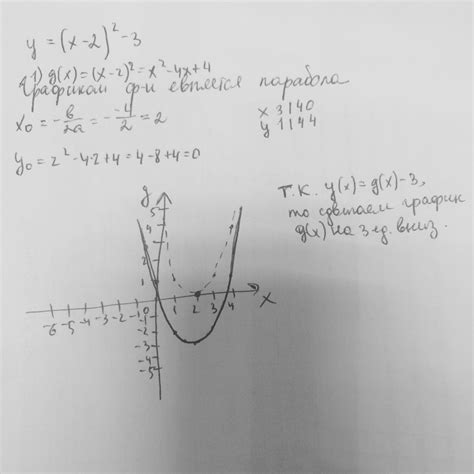 y = (x-2)² - 3
1) g(x) = (x-2)² = x² - 4x + 4
Графиком ф-и евляется парабола
x₀ = -b/2a = - -4/2 = 2
x 3 1 4 0
y 1 1 4 4
y₀ = 2² - 4·2 + 4 = 4 - 8 + 4 = 0
Т.К. y(x) = g(x) - 3,
то сдвигаем график
g(x) на 3 ед. вниз.
y
5
4
3
2
1
-6 -5 -4 -3 -2 -1 0 1 2 3 4 x
-1
-2
-3
-4
-5